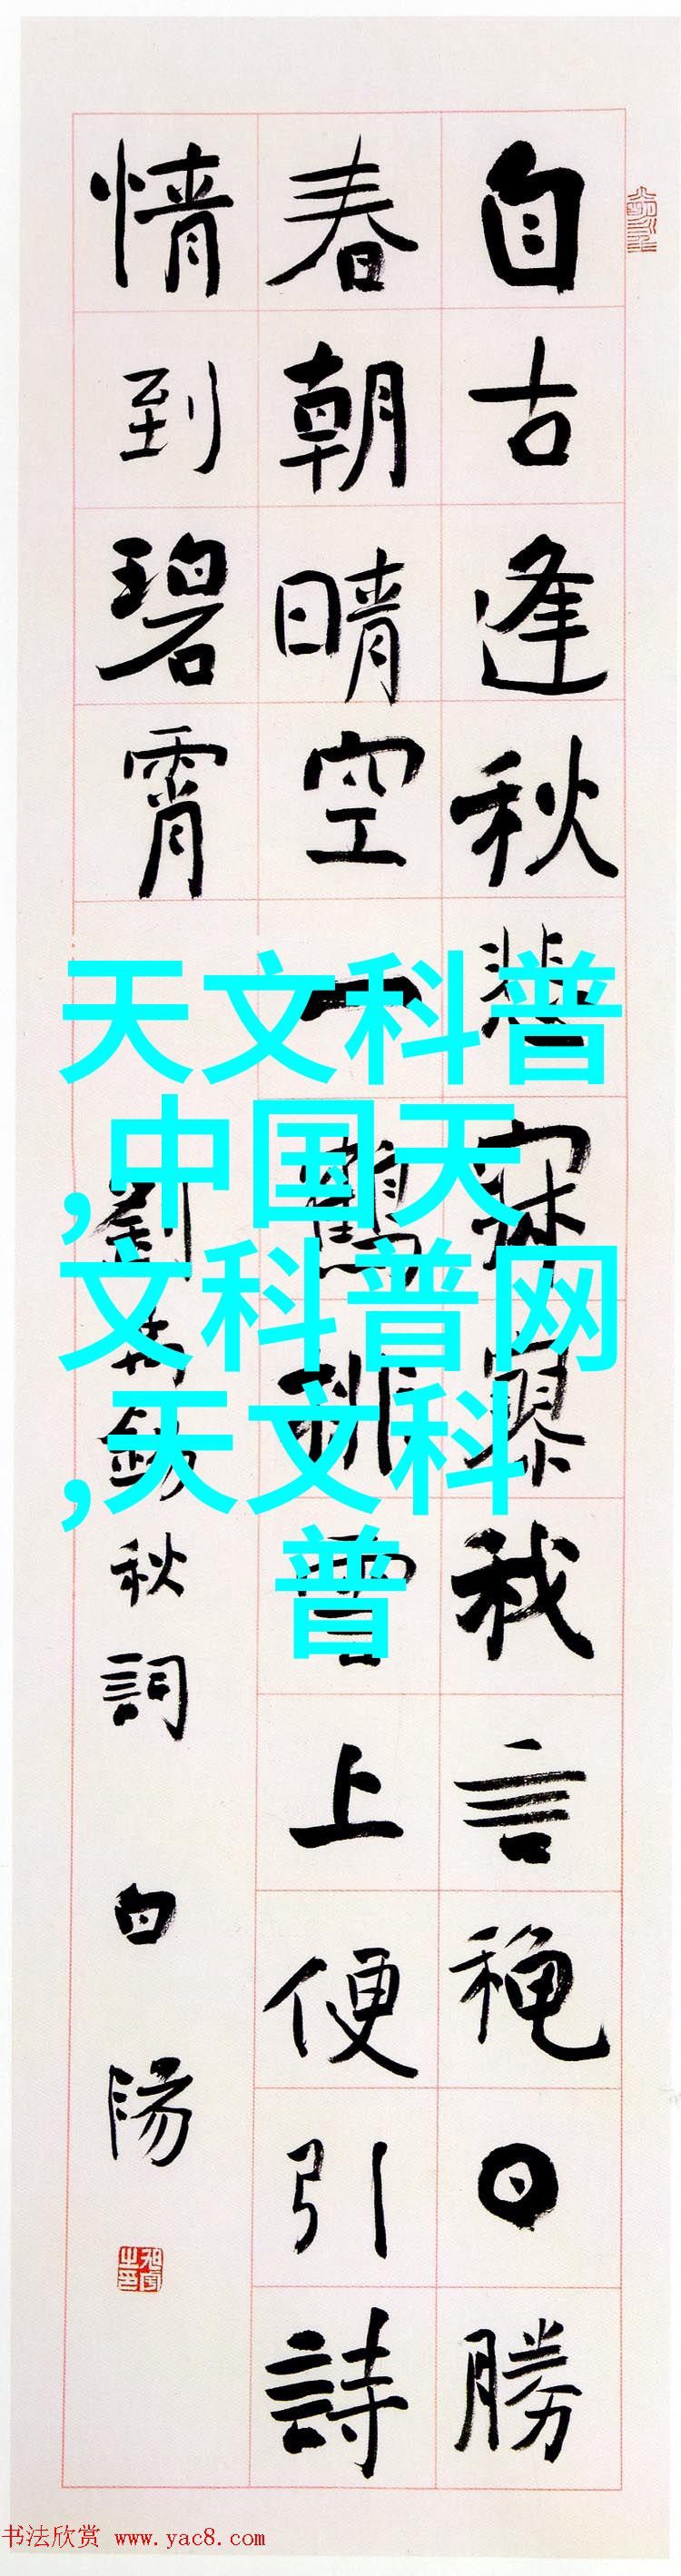 自古逢秋悲寂寥我言穐日勝
春朝晴空一鶴排雲上便引詩
情到碧霄
劉禹錫秋詞 白陽
天文科普
,中国天
文科普网
,天文科
普
书法欣赏 www.yac8.com